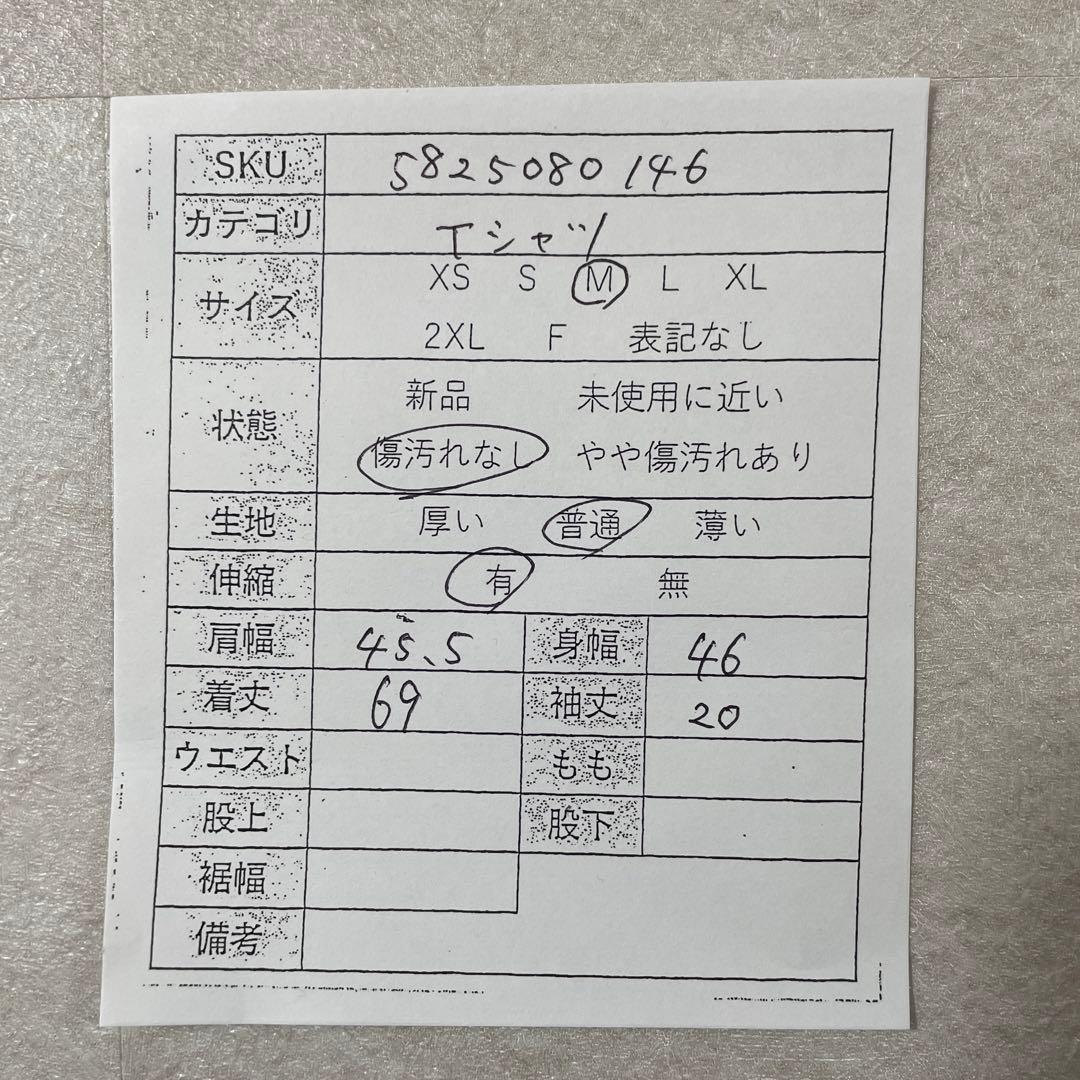 SKU 5825080146
カテゴリ Tシャツ
サイズ XS S M L XL
2XL F 表記なし
状態 新品 未使用に近い
傷汚れなし やや傷汚れあり
生地 厚い 普通 薄い
伸縮 有 無
肩幅 45.5 身幅 46
着丈 69 袖丈 20
ウエスト もも
股上 股下
裾幅
備考